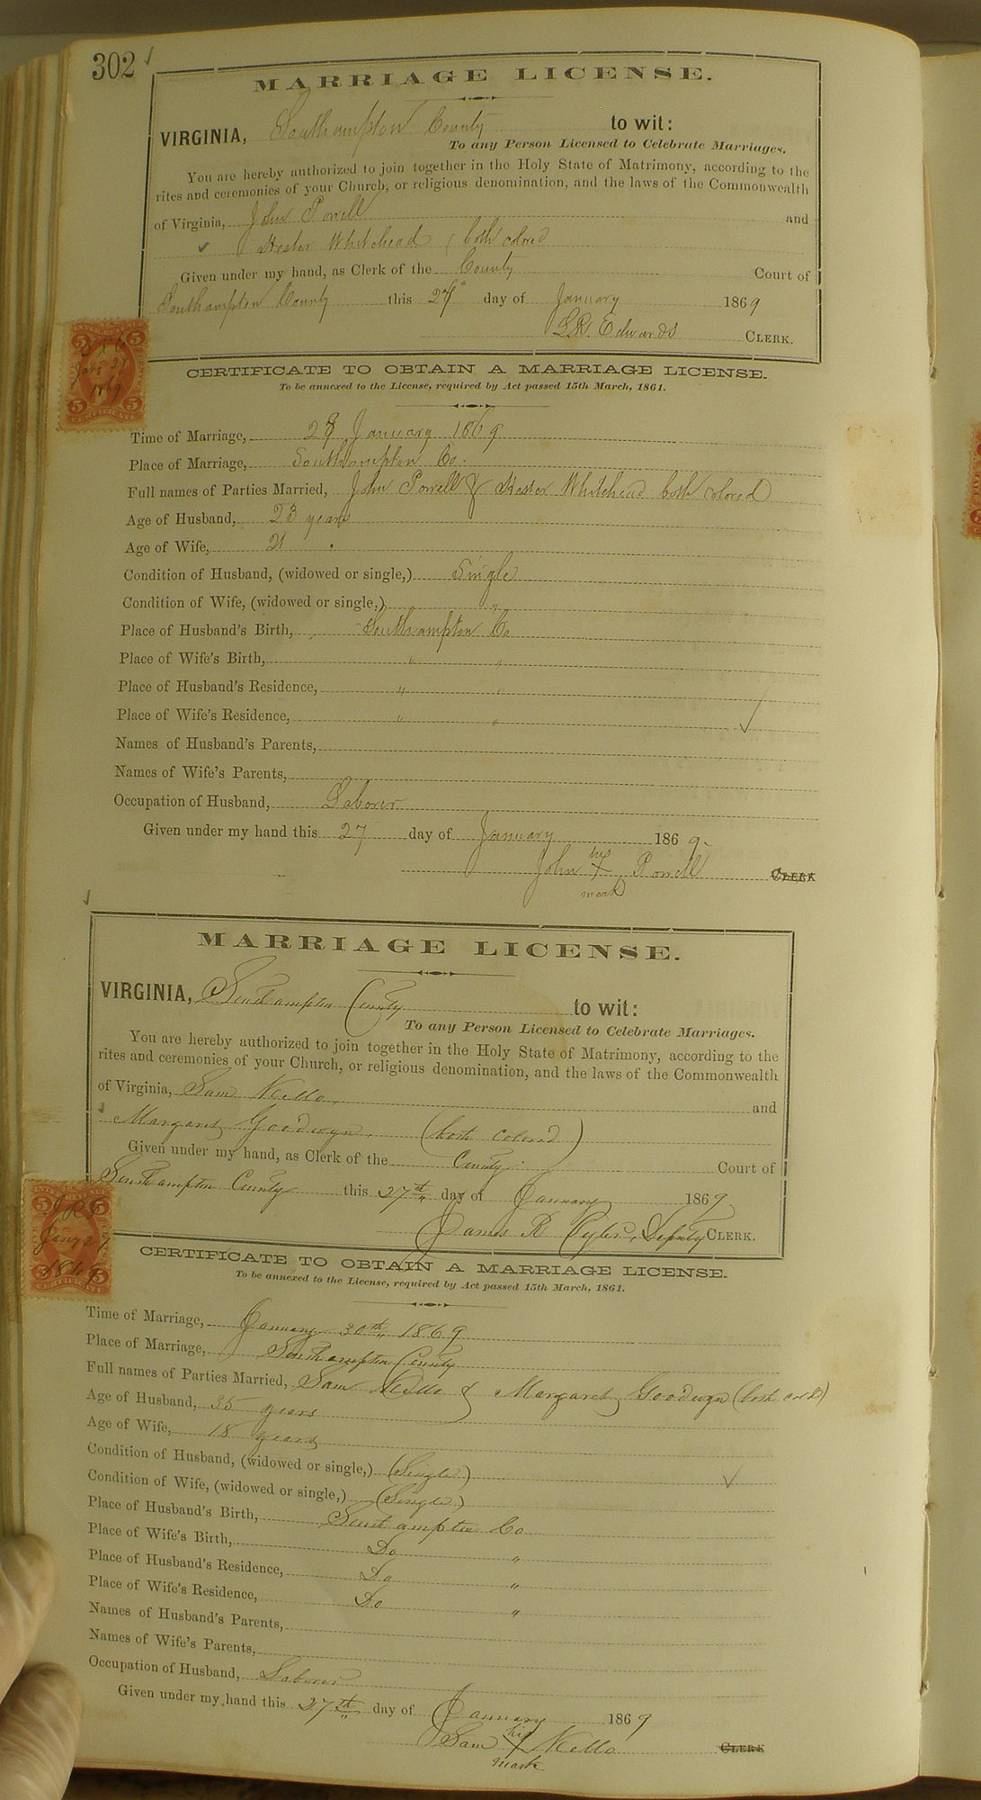 302
MARRIAGE LICENSE.
VIRGINIA, Southampton County to wit:
To any Person Licensed to Celebrate Marriages.
You are hereby authorized to join together in the Holy State of Matrimony, according to the
rites and ceremonies of your Church, or religious denomination, and the laws of the Commonwealth
of Virginia, John Powell and
Hester Whitehead (both colored
Given under my hand, as Clerk of the County Court of
Southampton County this 27 day of January 1869
L.R. Edwards CLERK.
5 5
Jany 27
1869
5 5
CERTIFICATE TO OBTAIN A MARRIAGE LICENSE.
To be annexed to the License, required by Act passed 15th March, 1861.
Time of Marriage, 28 January 1869
Place of Marriage, Southampton Co.
Full names of Parties Married, John Powell & Hester Whitehead both colored
Age of Husband, 23 years
Age of Wife, 21 "
Condition of Husband, (widowed or single,) Single
Condition of Wife, (widowed or single,) "
Place of Husband's Birth, Southampton Co
Place of Wife's Birth, " "
Place of Husband's Residence, " "
Place of Wife's Residence, " "
Names of Husband's Parents,
Names of Wife's Parents,
Occupation of Husband, Laborer
Given under my hand this 27 day of January 1869.
his
John X Powell CLERK
mark
MARRIAGE LICENSE.
VIRGINIA, Southampton County to wit:
To any Person Licensed to Celebrate Marriages.
You are hereby authorized to join together in the Holy State of Matrimony, according to the
rites and ceremonies of your Church, or religious denomination, and the laws of the Commonwealth
of Virginia, Sam Nello and
Margaret Goodwyn, (both colored)
Given under my hand, as Clerk of the County Court of
Southampton County this 27th day of January 1869
James R Tyler, Deputy CLERK.
5 5
Jany 27
1869
CERTIFICATE TO OBTAIN A MARRIAGE LICENSE.
To be annexed to the License, required by Act passed 15th March, 1861.
Time of Marriage, January 30th 1869
Place of Marriage, Southampton County
Full names of Parties Married, Sam Nello & Margaret Goodwyn (both cold)
Age of Husband, 35 years
Age of Wife, 18 years
Condition of Husband, (widowed or single,) (Single)
Condition of Wife, (widowed or single,) (Single)
Place of Husband's Birth, Southampton Co
Place of Wife's Birth, Do "
Place of Husband's Residence, Do "
Place of Wife's Residence, Do "
Names of Husband's Parents,
Names of Wife's Parents,
Occupation of Husband, Laborer
Given under my hand this 27th day of January 1869
his
Sam X Nello CLERK
mark